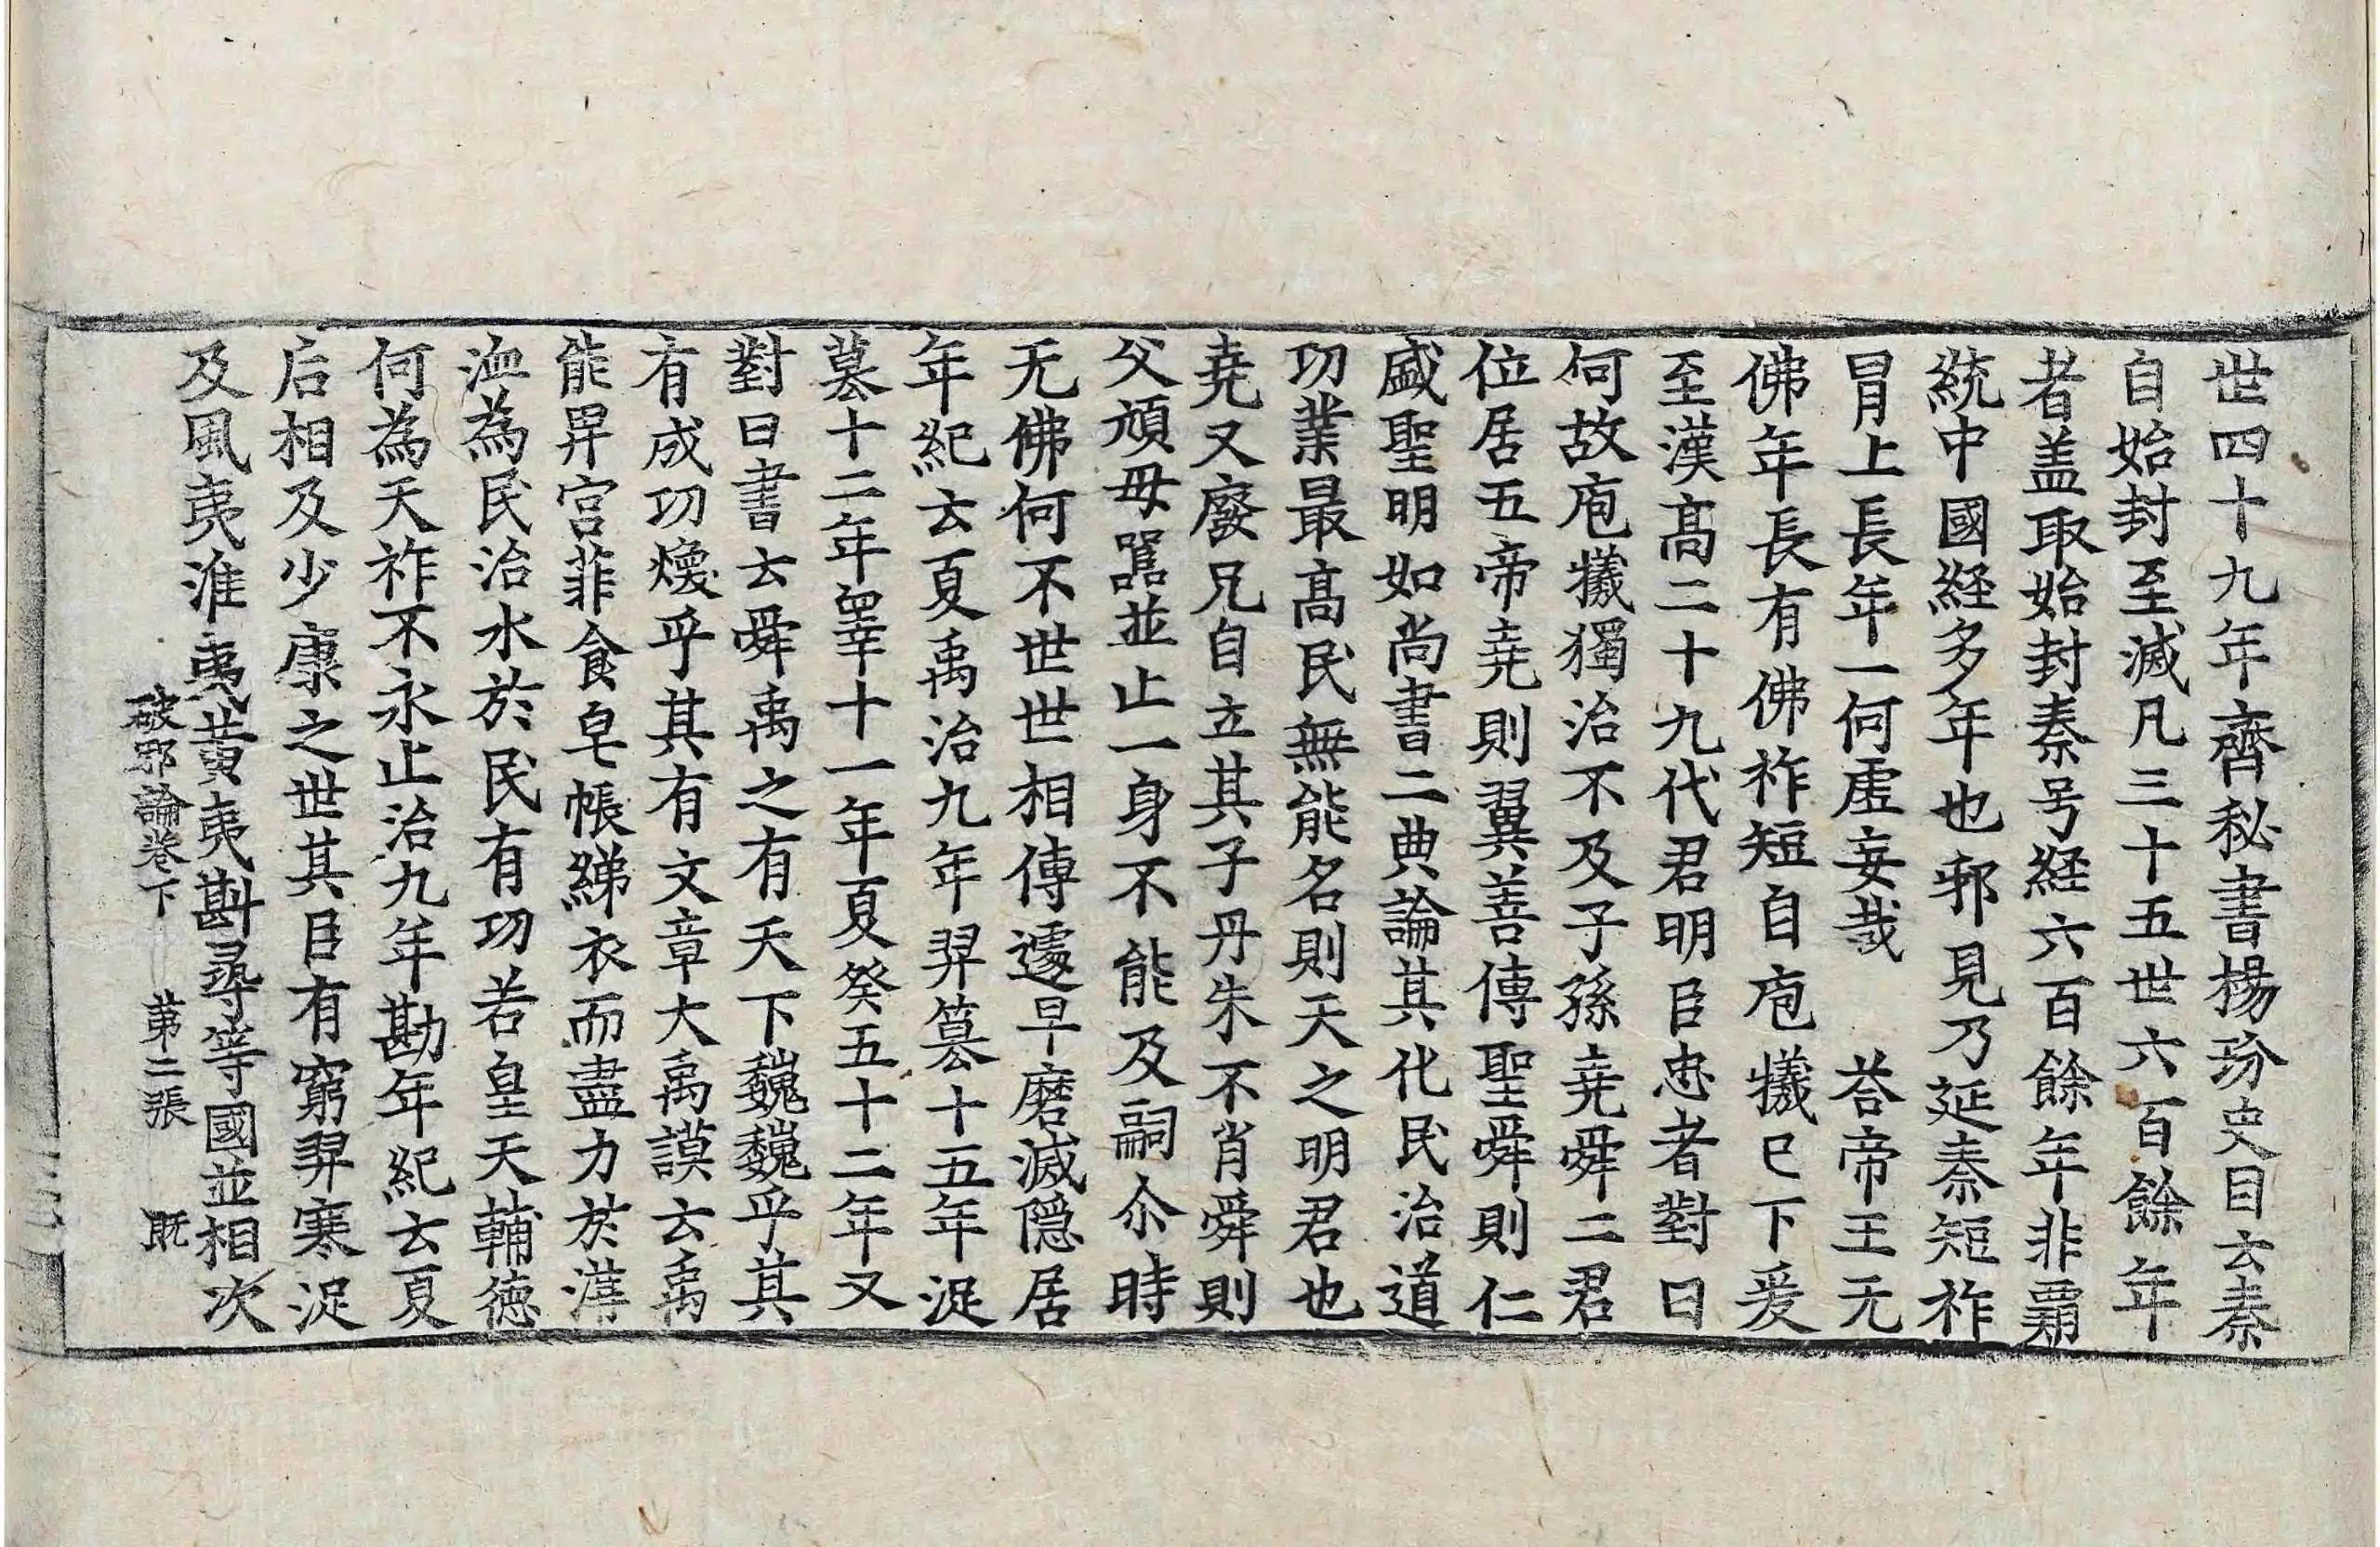 世四十九年齊秘書楊玢史目云秦
自始封至滅凡三十五世六百餘年
者盖取始封秦号経六百餘年非霸
統中國経多年也邪見乃延秦短祚
冒上長年一何虛妄哉　荅帝王无
佛年長有佛祚短自庖犧已下爰
至漢髙二十九代君明臣忠者對曰
何故庖犧獨治不及子孫堯舜二君
位居五帝堯則翼善傳聖舜則仁
盛聖明如尚書二典論其化民治道
功業最髙民無能名則天之明君也
堯又廢兄自立其子丹朱不肖舜則
父頑母嚚並止一身不能及嗣尒時
无佛何不世世相傳遽早磨滅隠居
年紀云夏禹治九年羿篡十五年浞
墓十二年睾十一年夏癸五十二年又
對曰書云舜禹之有天下巍巍乎其
有成功煥乎其有文章大禹謨云禹
能卑宮菲食皂帳綈衣而盡力於溝
洫為民治水於民有功若皇天輔德
何為天祚不永止治九年勘年紀云夏
后相及少康之世其臣有窮羿寒浞
及風夷淮夷黃夷斟尋等國並相次
破邪論卷下　第二張　既